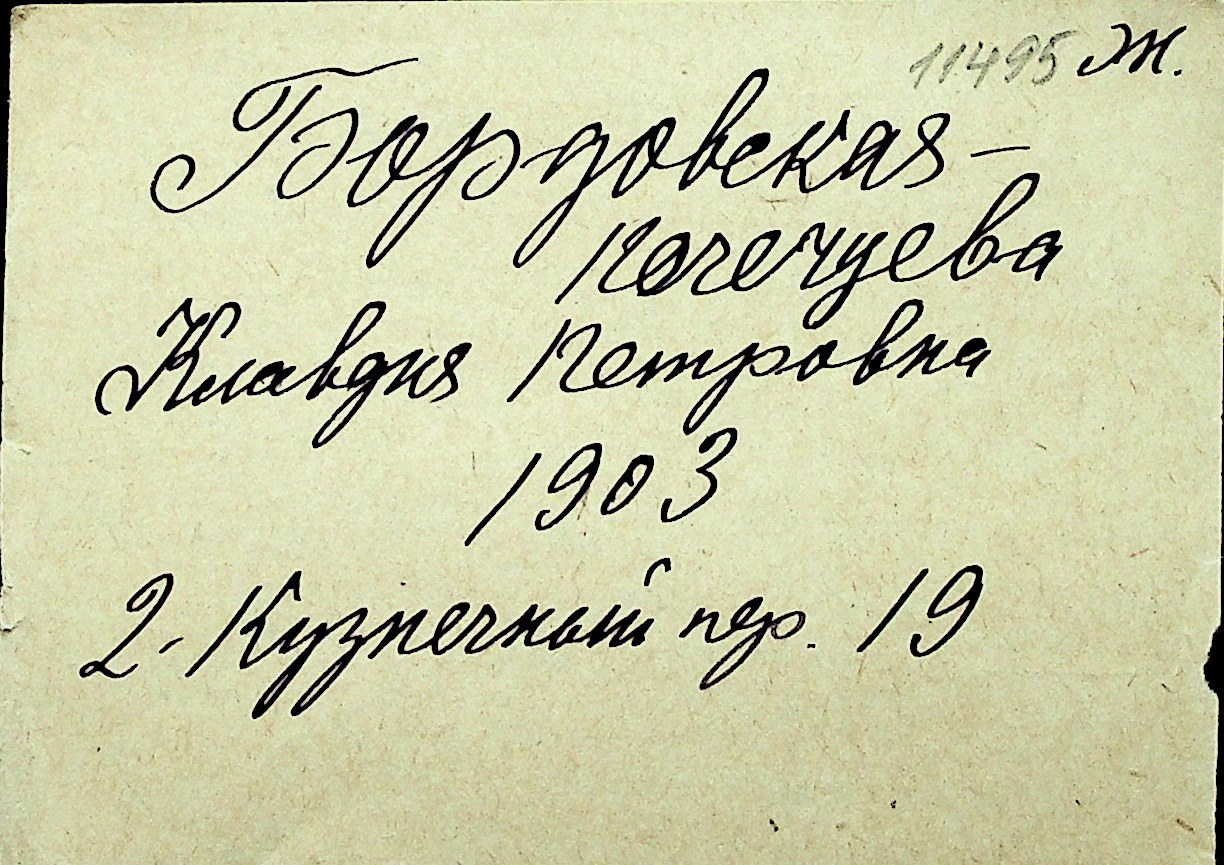 11495 Ж.
Бордовская-
Клавдия Петровна
1903
2. Кузнечный пер. 19